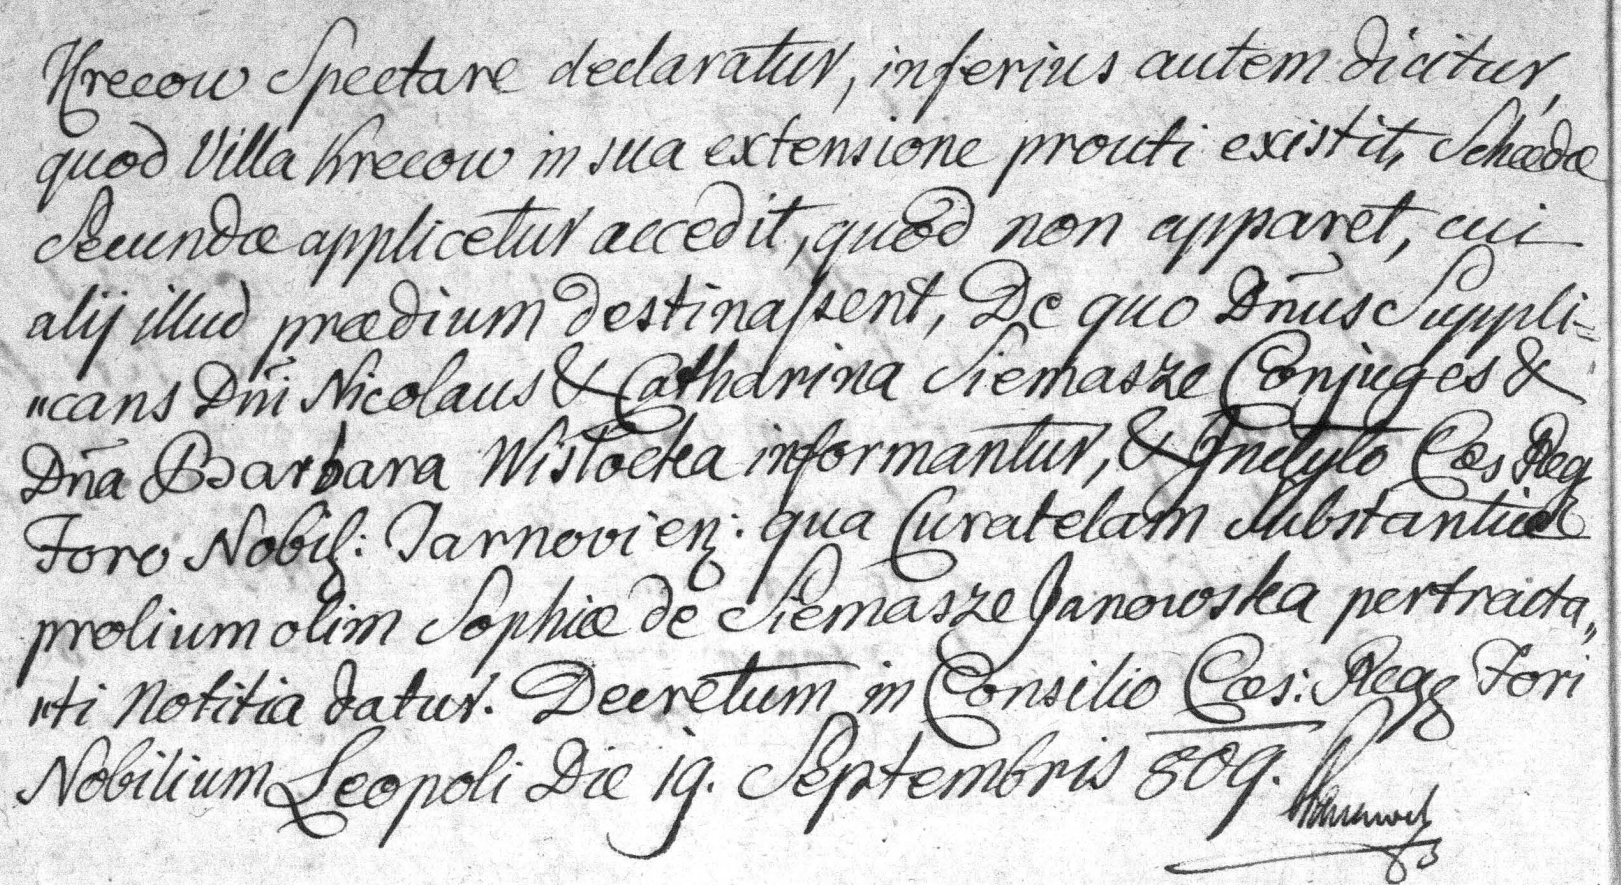 Krecow Spectare declaratur, inferius autem dicitur,
quod Villa Krecow in sua extensione prouti existit, Schædæ
Secundæ applicetur accedit, quod non apparet, cui
alij illud prædium destinassent, De quo Dn̄us Suppli=
"cans Dn̄i Nicolaus & Catharina Siemasze Conjuges &
Dn̄a Barbara Wisłocka informantur, & Inclyto Cæs Reg
Foro Nobil: Tarnovien: qua Curatelam Substantiæ
prolium olim Sophiæ de Siemasze Janowska pertracta„
"ti Notitia datur. Decretum in Consilio Cæs: Regg Fori
Nobilium Leopoli Die 19. Septembris 809.